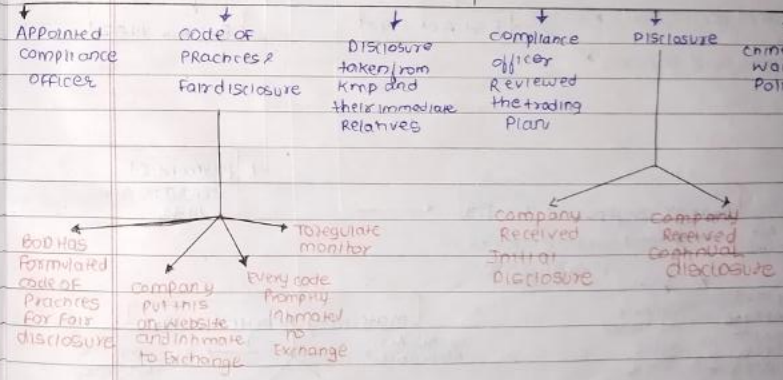 Appointed
compliance
officer
code of
Practices &
Fair disclosure
Disclosure
taken from
Kmp and
their immediate
Relatives
compliance
officer
Reviewed
the trading
Plan
Disclosure
chin
wa
Poli
BOD Has
Formulated
code of
Practices
For Fair
disclosure
company
put this
on website
and inhmate
to Exchange
Every code
Promptly
Inhmated
to
Exchange
To regulate
monitor
company
Received
Initial
Disclosure
company
Received
continual
disclosure